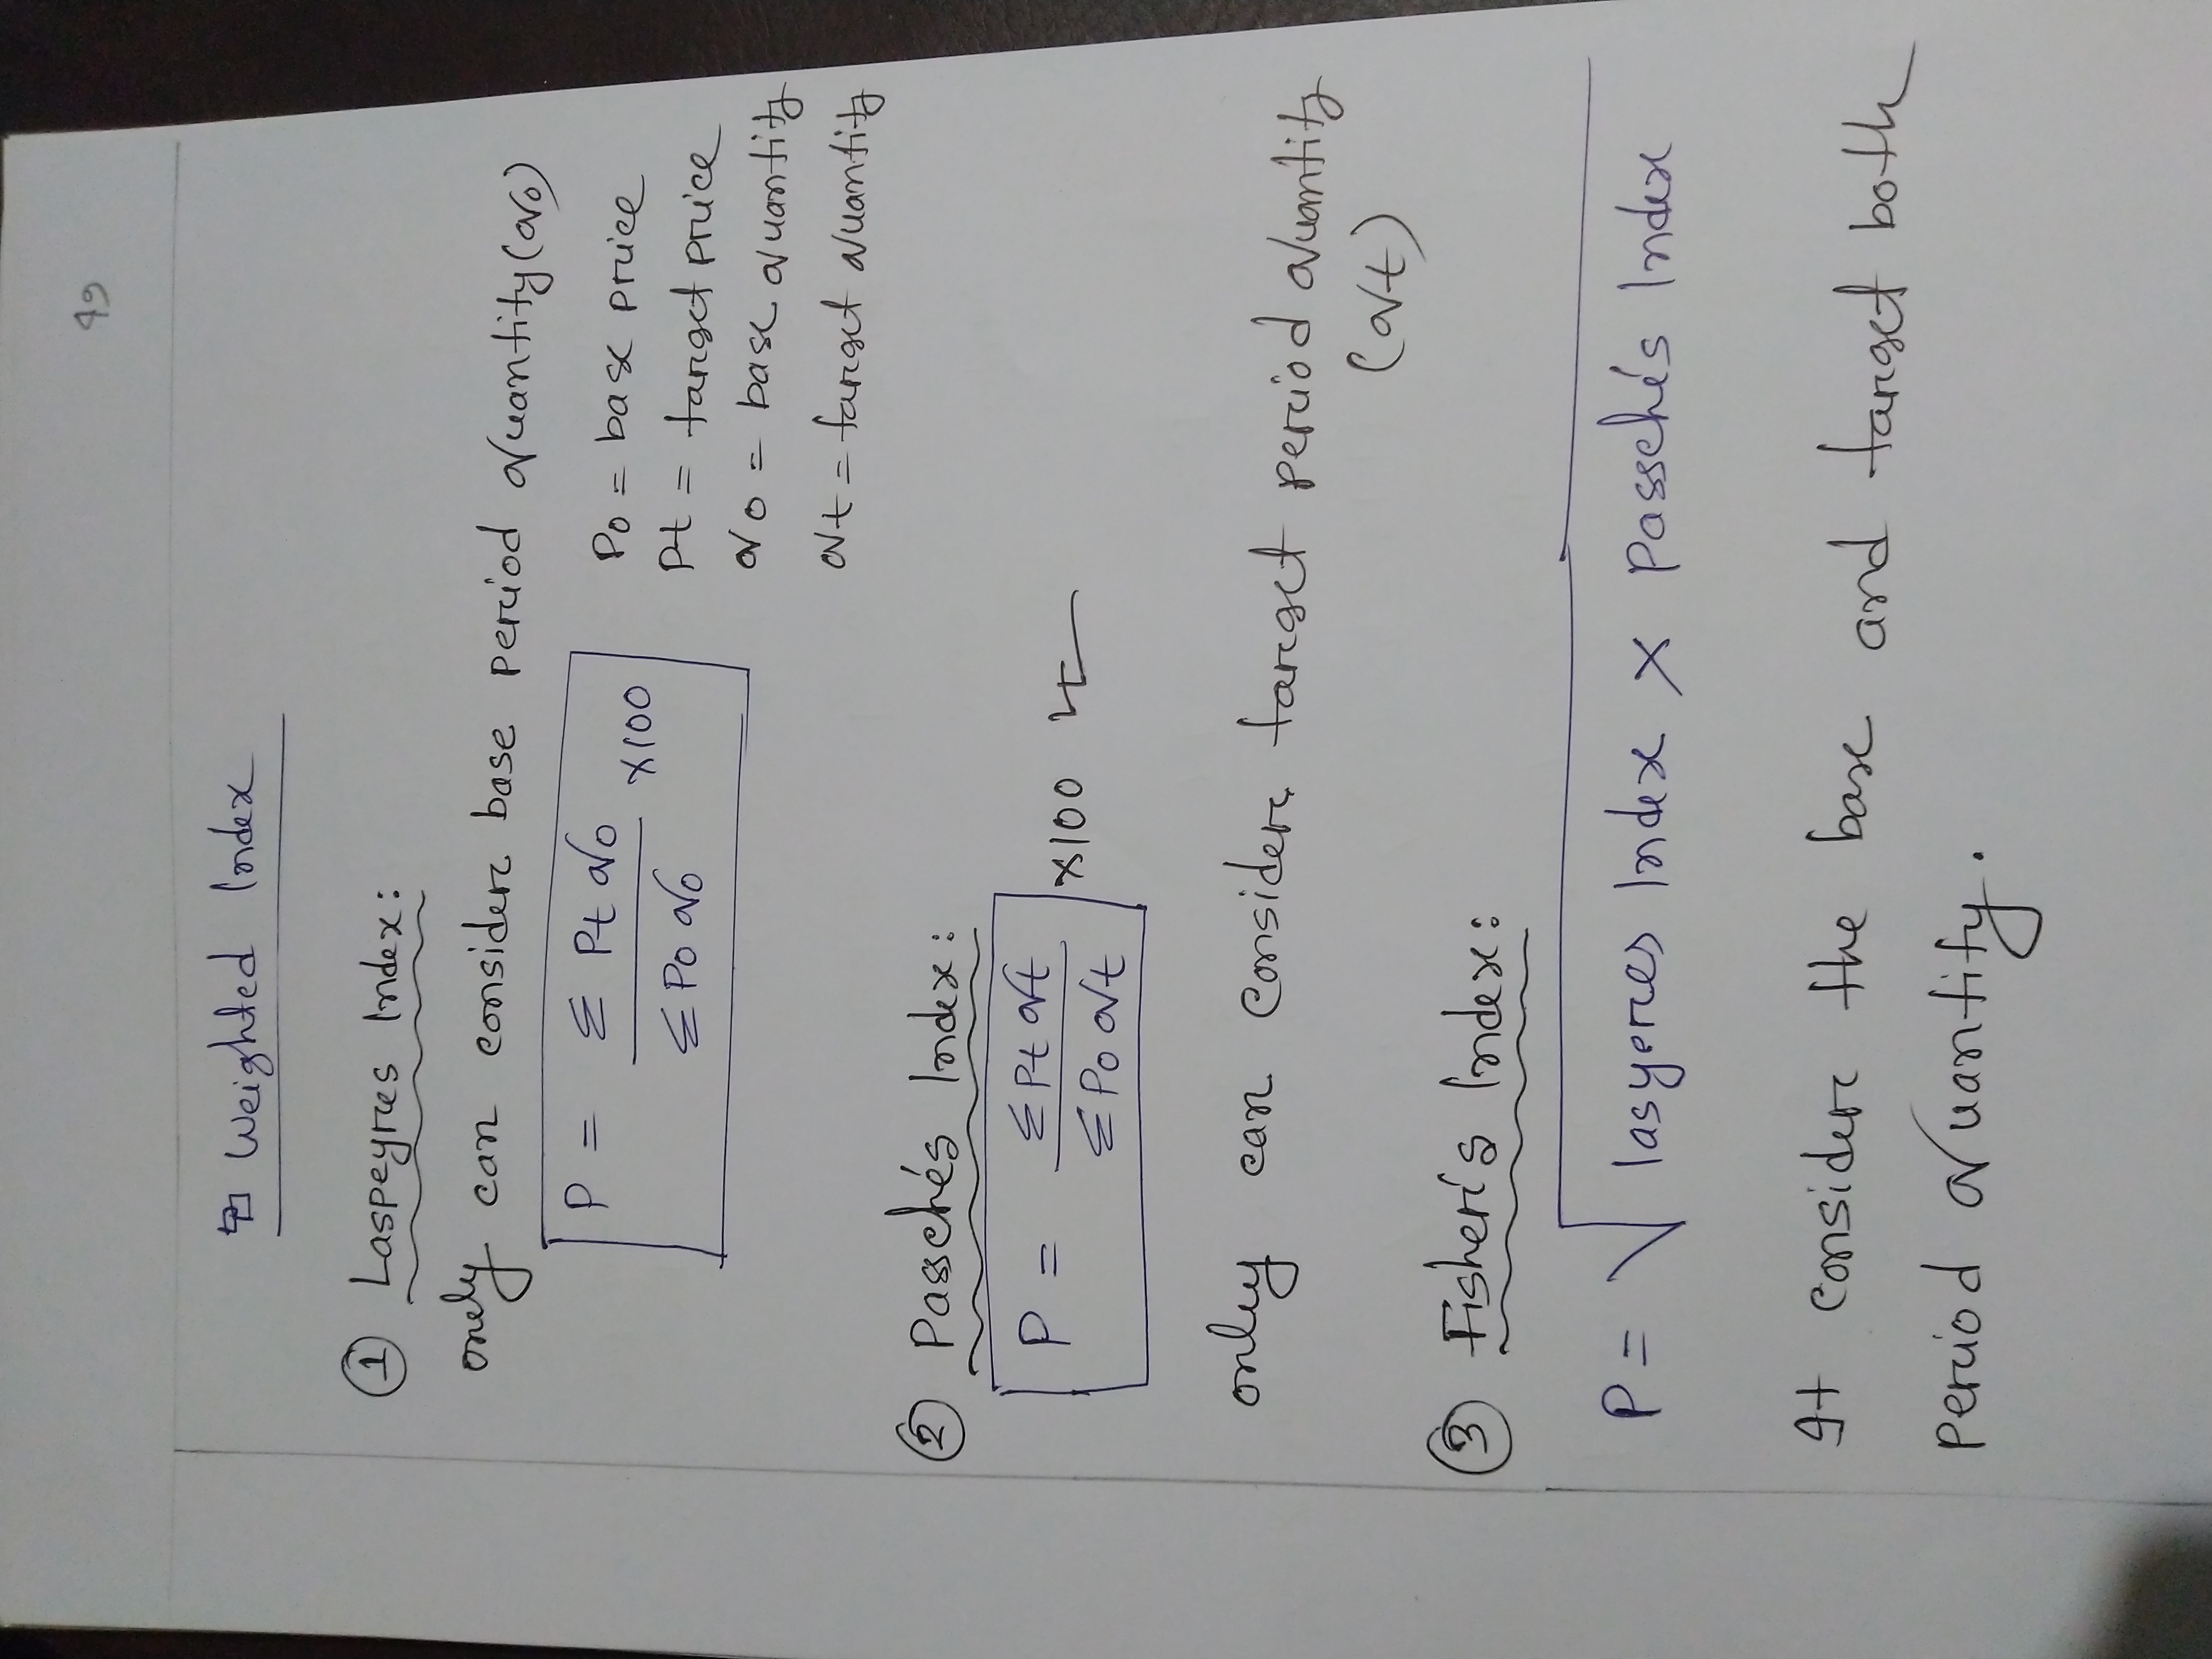 49
Weighted Index
① Laspeyres Index:
only can consider base period quantity (q0)
P = Σ Pt q0 / Σ P0 q0 ×100
P0 = base price
Pt = target price
q0 = base quantity
qt = target quantity
② Passche's Index:
P = Σ Pt qt / Σ P0 qt ×100
only can consider target period quantity
(qt)
③ Fisher's Index:
P = √ lasyeres Index × Passche's Index
It consider the base and target both
period quantity.